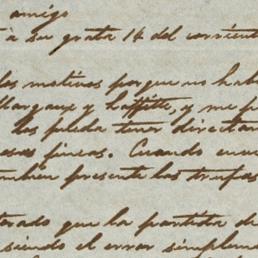 amigo
á su grata 14 del corriente
los motivos porque no hab
Margaux y Laffitte, y me p
los pueda tener directam
esas fincas. Cuando
mbien presente las trufas
orado que la partida de
siendo el error simplem